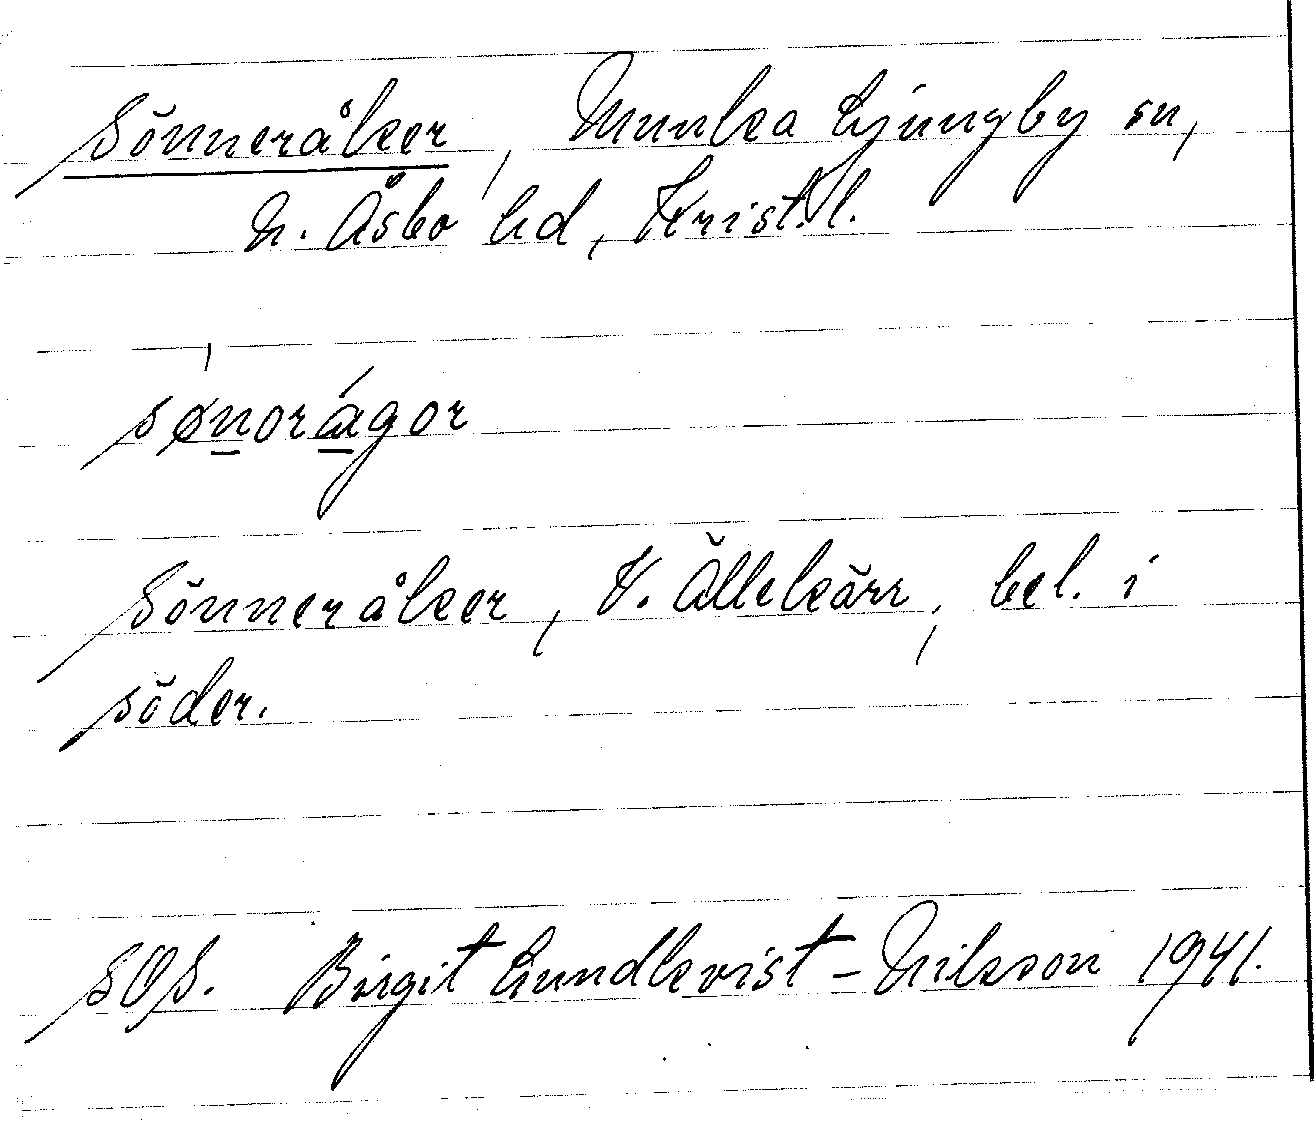 Sönneråker, Munka Ljungby sn,
N. Åsbo hd, Krist. l.
sønorágor
Sönneråker, V. Ällekärr, bel. i
söder.
SOS. Birgit Lundkvist-Nilsson 1941.